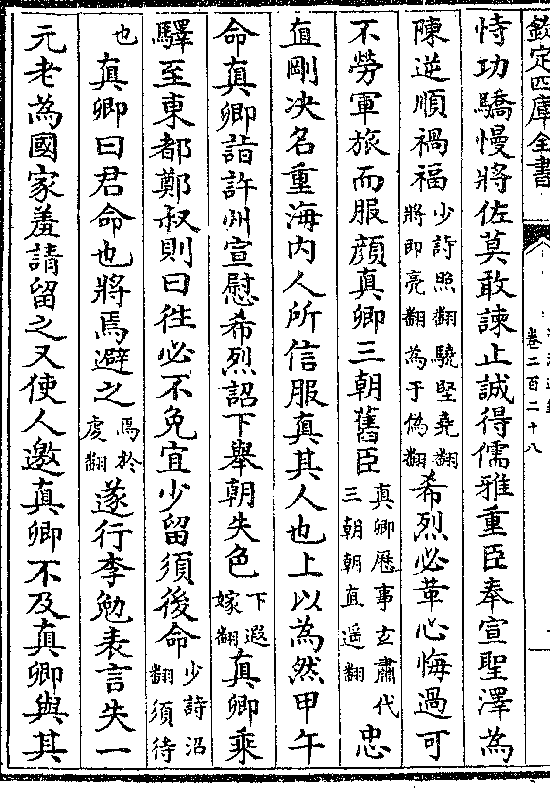 欽定四庫全書
卷二百二十八
恃功驕慢將佐莫敢諫止誠得儒雅重臣奉宣聖澤為
陳逆順禍福少詩照翻驍堅堯翻將即亮翻為于偽翻希烈必革心悔過可
不勞軍旅而服顔真卿三朝舊臣真卿歷事玄肅代三朝朝直遥翻忠
直剛决名重海内人所信服真其人也上以為然甲午
命真卿詣許州宣慰希烈詔下舉朝失色下遐嫁翻真卿乘
驛至東都鄭叔則曰往必不免宜少留須後命少詩沼翻須待
也真卿曰君命也將焉避之焉於虔翻遂行李勉表言失一
元老為國家羞請留之又使人邀真卿不及真卿與其